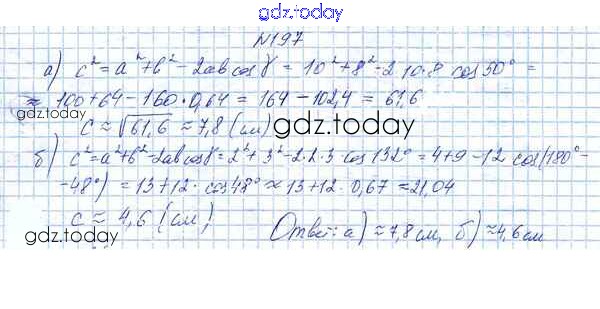 gdz.today
№197
а) c² = a² + b² - 2ab cos γ = 10² + 8² - 2·10·8 cos 50° =
≈ 100 + 64 - 160·0,64 = 164 - 102,4 = 61,6
c ≈ √61,6 ≈ 7,8 (см) gdz.today
б) c² = a² + b² - 2ab cos γ = 2² + 3² - 2·2·3 cos 132° = 4 + 9 - 12 cos(180° -
- 48°) = 13 + 12 · cos 48° ≈ 13 + 12 · 0,67 ≈ 21,04
gdz.today
c ≈ 4,6 (см)
Ответ: а) ≈ 7,8 см, б) ≈ 4,6 см
gdz.today